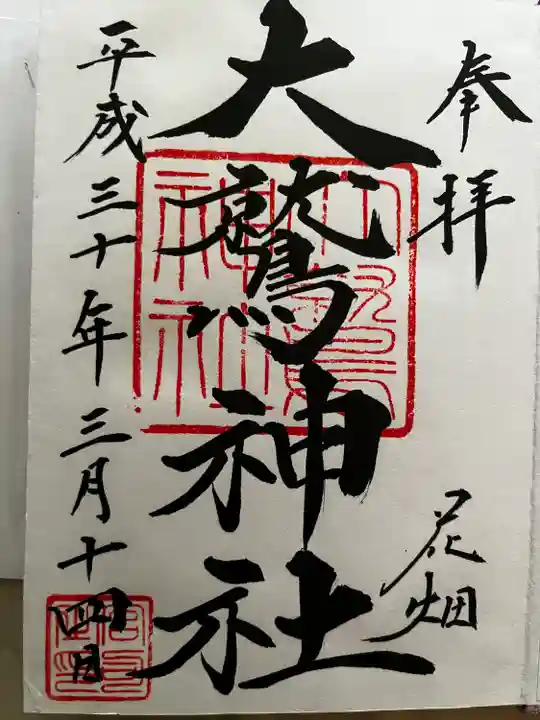 奉拝
花畑
大鷲神社
平成三十年三月十四日